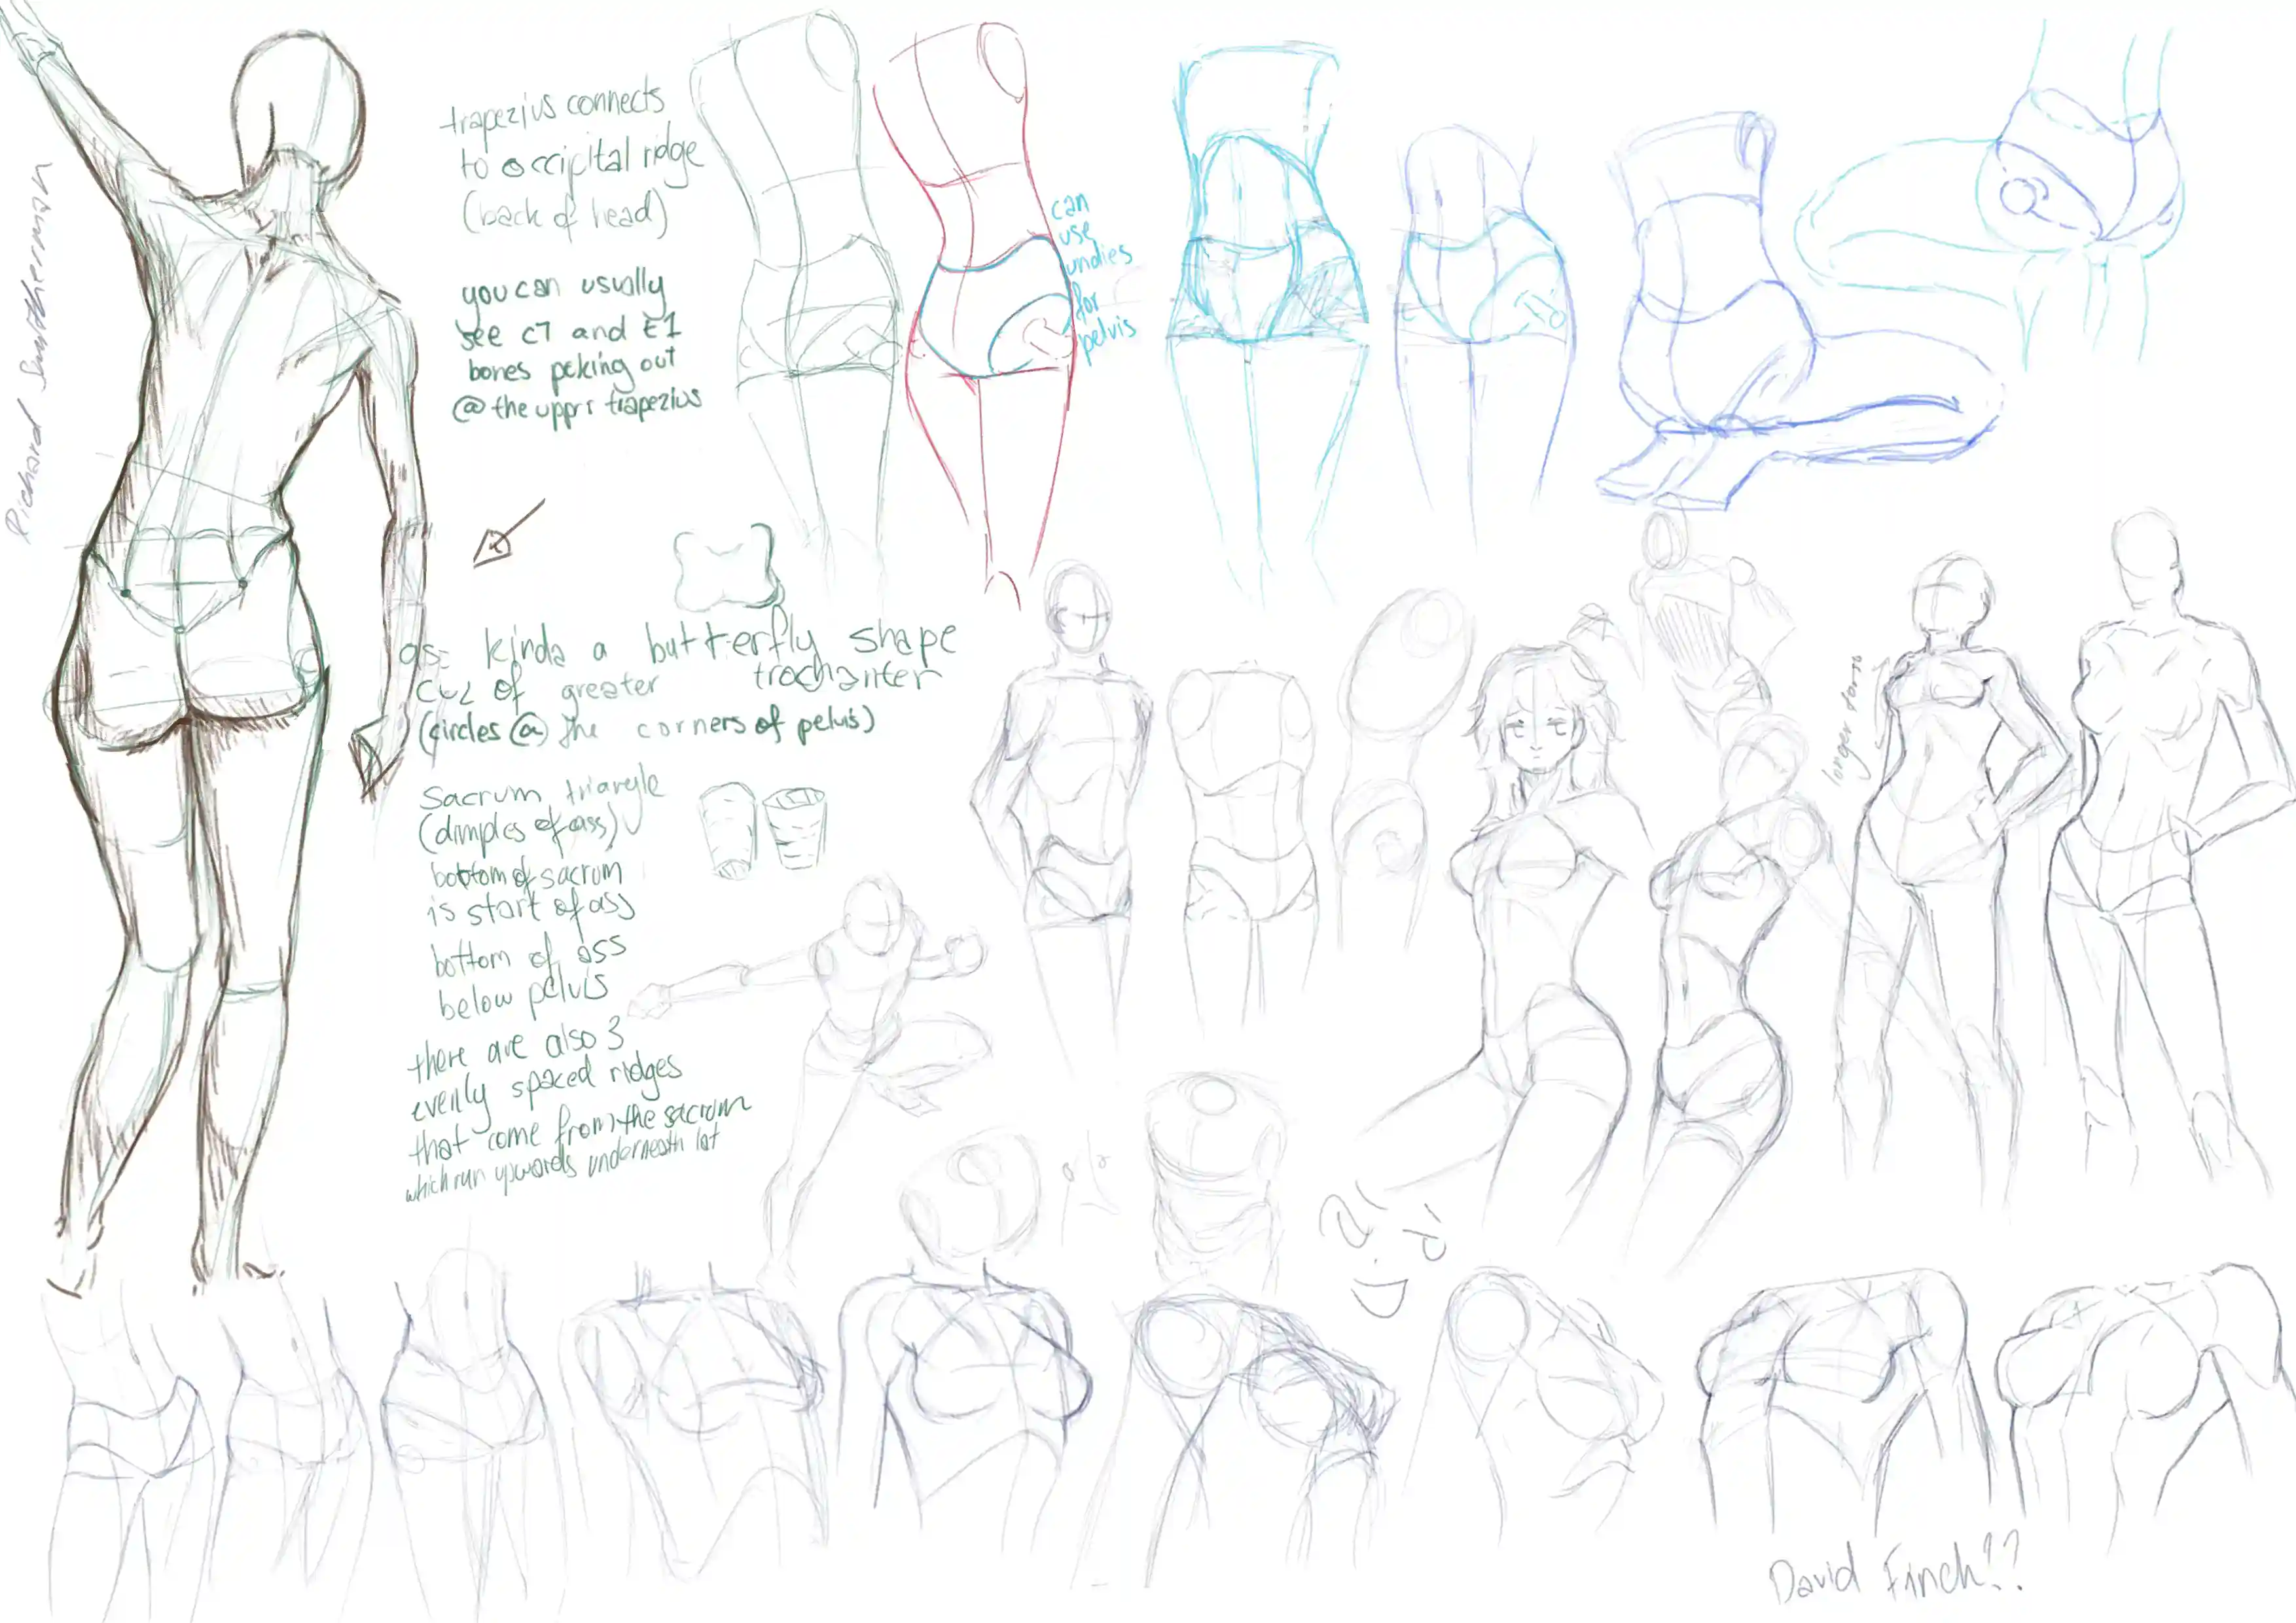 Richard Smitherman
trapezius connects
to occipital ridge
(back of head)
you can usually
see c7 and t1
bones peking out
@ the uppr trapezius
can
use
undies
for
pelvis
as= kinda a butterfly shape
cuz of greater trochanter
(circles @ the corners of pelvis)
Sacrum triangle
(dimples of ass)
bottom of sacrum
is start of ass
bottom of ass
below pelvis
there are also 3
evenly spaced ridges
that come from the sacrum
which run upwards underneath lat
longer torso
David Finch??